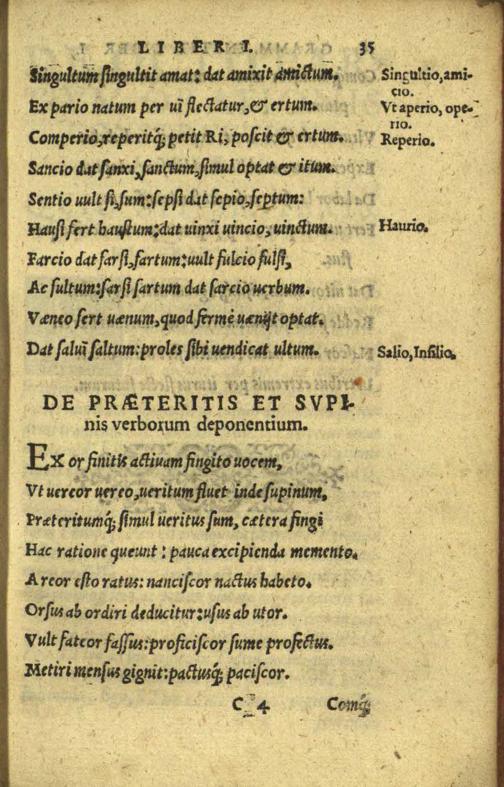 LIBER I. 35
Singultum singultit amat: dat amixit amictum. Singultio, ami-
cio.
Ex pario natum per uī flectatur, & ertum. Vt aperio, ope-
rio.
Comperio, reperitq́; petit Ri, poscit & ertum. Reperio.
Sancio dat sanxi, sanctum, simul optat & itum.
Sentio uult si, sum: sepsi dat sepio, septum:
Hausi fert haustum: dat uinxi uincio, uinctum. Haurio.
Farcio dat farsi, fartum: uult fulcio fulsi,
Ac fultum: sarsi sartum dat sarcio uerbum.
Væneo fert uænum, quod fermè uænijt optat.
Dat saluī saltum: proles sibi uendicat ultum. Salio, Insilio.
DE PRÆTERITIS ET SVPI-
nis verborum deponentium.
EX or finitis actiuam fingito uocem,
Vt uereor uereo, ueritum fluet inde supinum,
Præteritumq́; simul ueritus sum, cætera fingi
Hac ratione queunt: pauca excipienda memento.
A reor esto ratus: nanciscor nactus habeto.
Orsus ab ordiri deducitur: usus ab utor.
Vult fateor fassus: proficiscor sume profectus.
Metiri mensus gignit: pactusq́; paciscor.
C 4 Comq́;